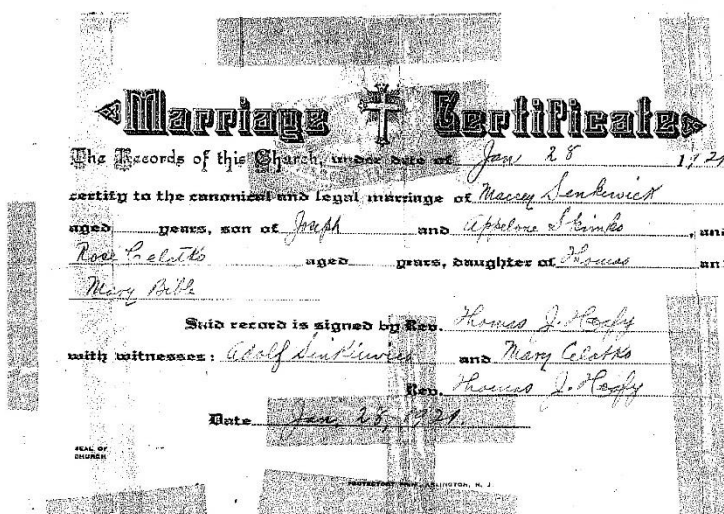 Marriage Certificate
The Records of this Church, under date of Jan 28 1921
certify to the canonical and legal marriage of Maccey Senkewick
aged years, son of Joseph and Appelone Skimko, and
Rose Celatko aged years, daughter of Thomas an
Mary Bible
Said record is signed by Rev. Thomas J. Heafy
with witnesses: Adolf Sinkiewics and Mary Celatko
Rev. Thomas J. Heafy
Date Jan. 28, 1921.
SEAL OF
CHURCH
PROTECTORY ARLINGTON, N. J.